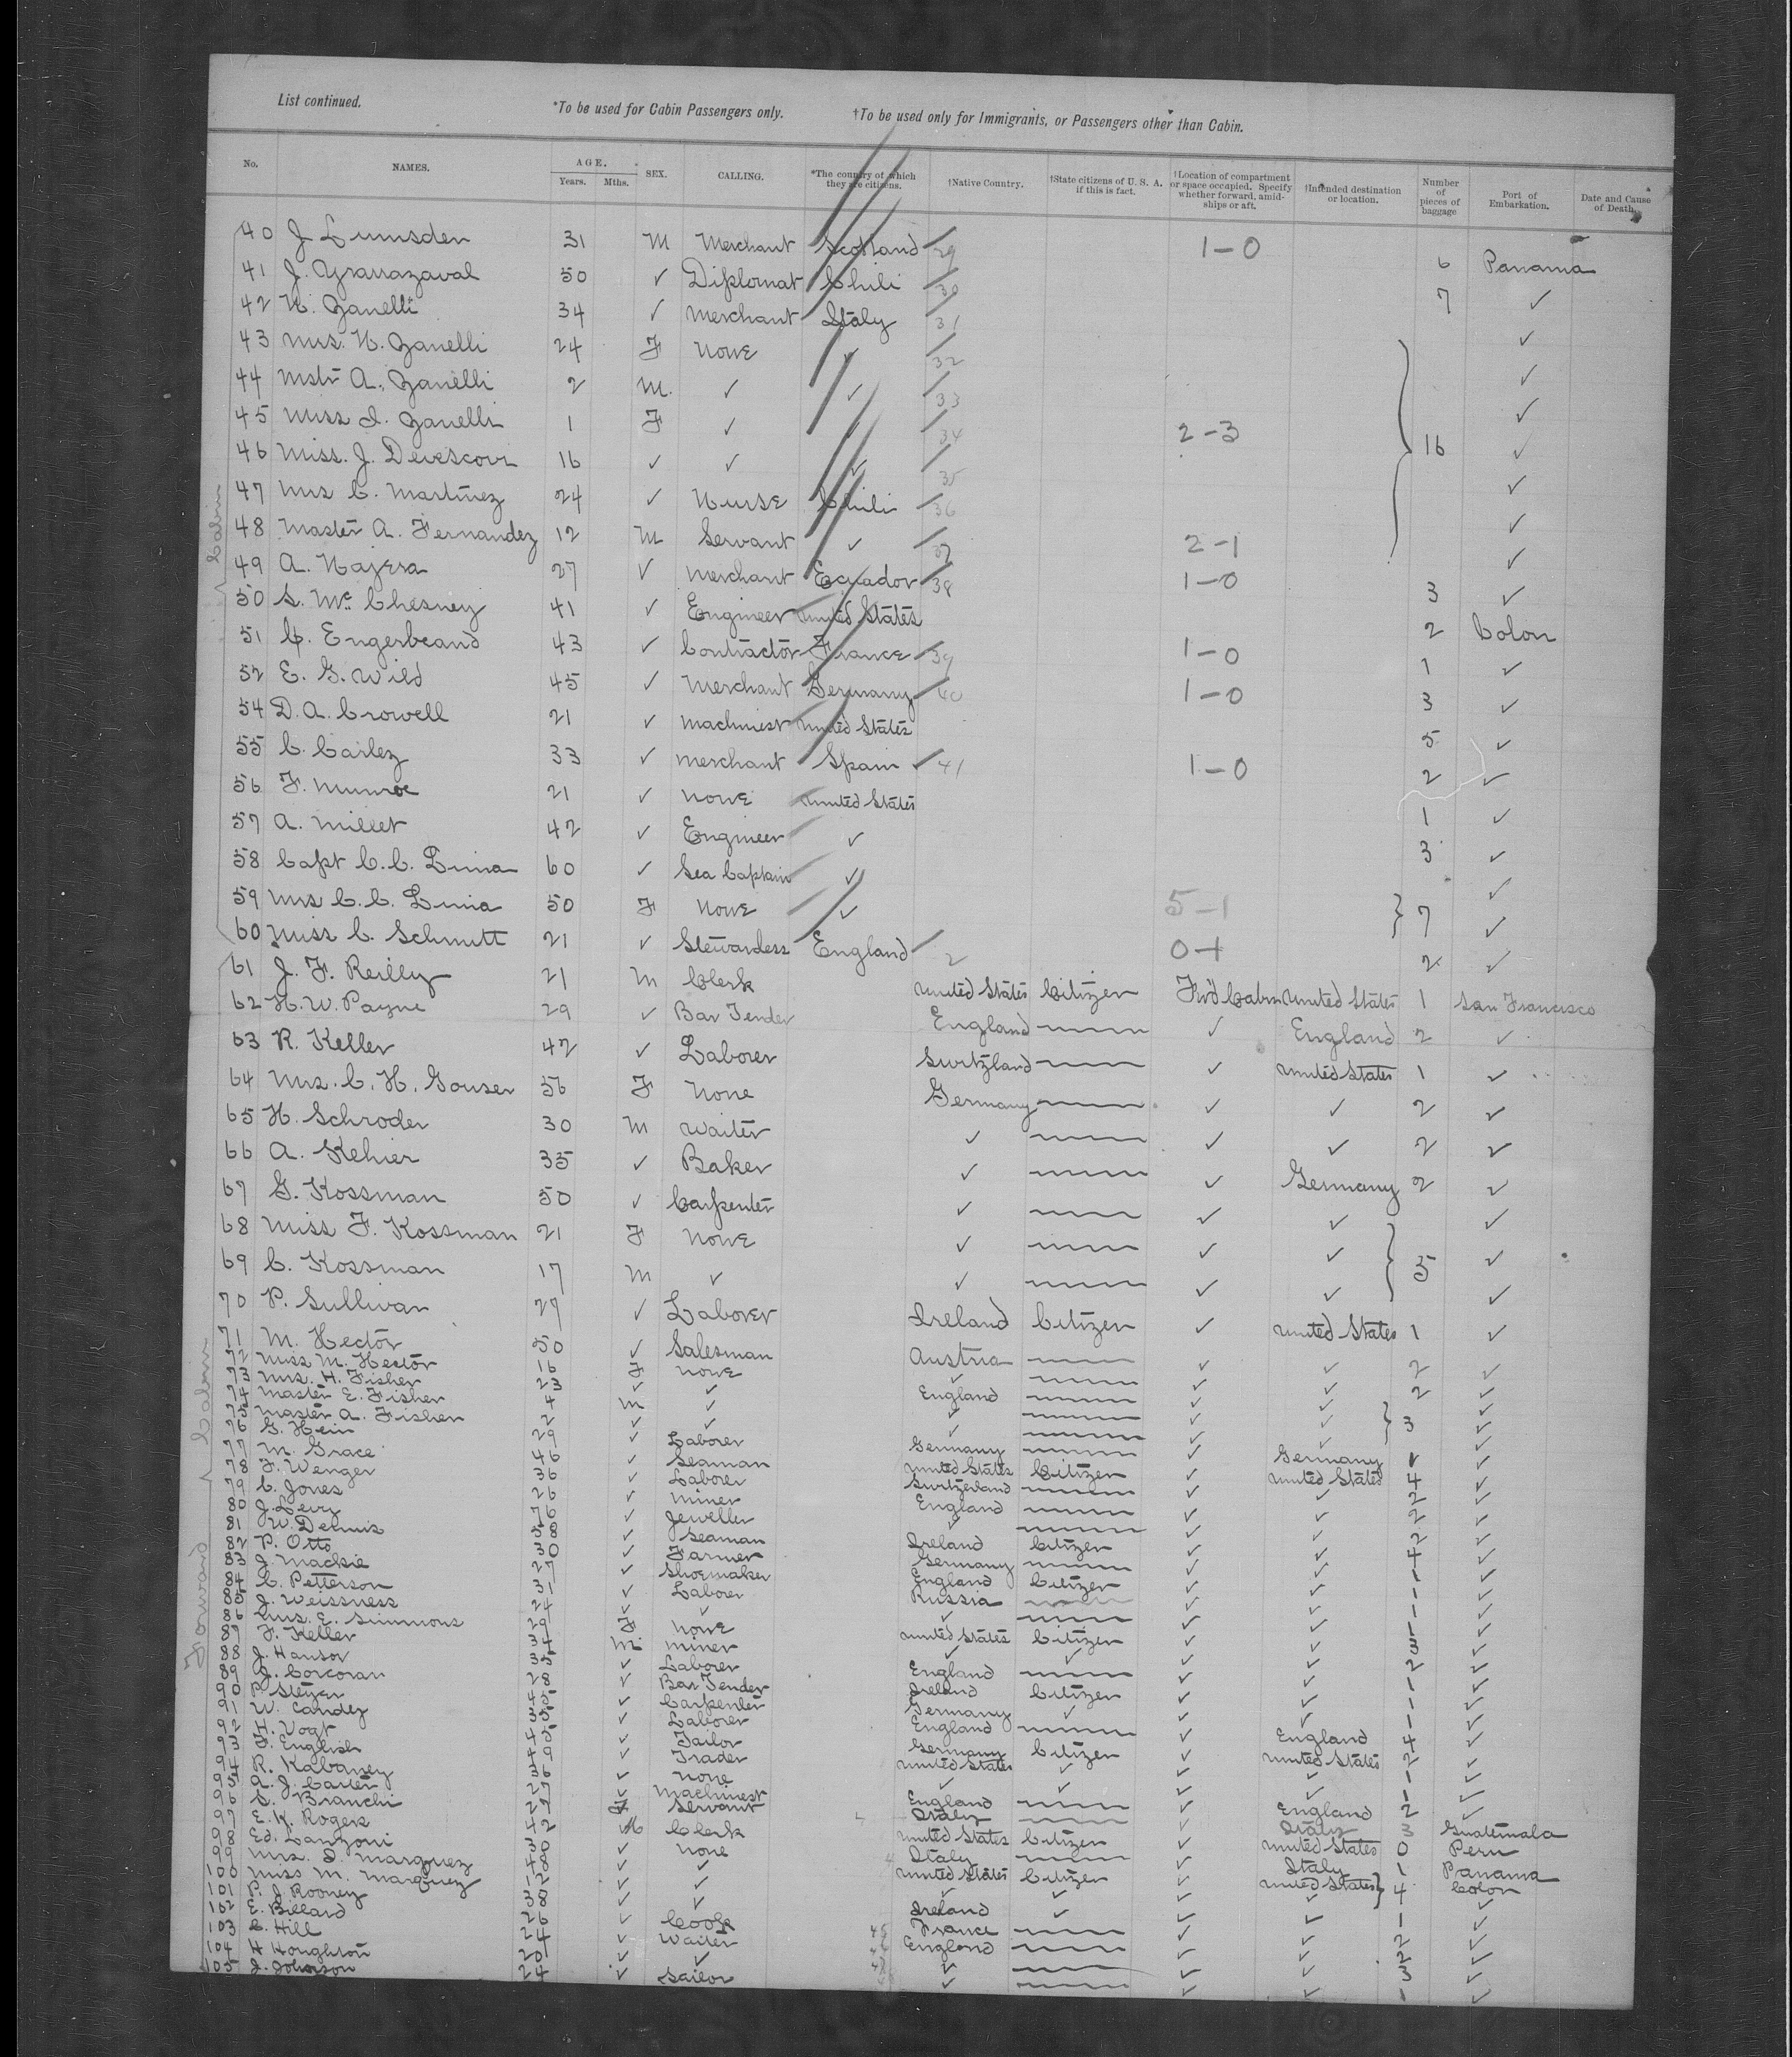 List continued. *To be used for Cabin Passengers only. †To be used only for Immigrants, or Passengers other than Cabin.
No. NAMES. AGE. Years. Mths. SEX. CALLING. *The country of which they are citizens. †Native Country. †State citizens of U. S. A. if this is fact. †Location of compartment or space occupied. Specify whether forward, amidships or aft. †Intended destination or location. Number of pieces of baggage Port of Embarkation. Date and Cause of Death.
Cabin
40 J Lumsden 31 M Merchant Scotland 29 1-0 6 Panama
41 J. Yrarrazaval 50 ✓ Diplomat Chili 30 7 ✓
42 N. Zanelli 34 ✓ Merchant Italy 31 ✓
43 Mrs. N. Zanelli 24 F None ✓ 32 ✓
44 Mstr A. Zanelli 2 M. ✓ ✓ 33 ✓
45 Miss I. Zanelli 1 F ✓ 34 2-3 16 ✓
46 Miss. J. Devescovi 16 ✓ ✓ ✓ 35 ✓
47 Mrs C. Martinez 24 ✓ Nurse Chili 36 ✓
48 Master A. Fernandez 12 M Servant ✓ 37 2-1 ✓
49 A. Najera 27 ✓ Merchant Ecuador 38 1-0 3 ✓
50 S. Mc Chesney 41 ✓ Engineer United States 2 Colon
51 C. Engerbeand 43 ✓ Contractor France 39 1-0 1 ✓
52 E. G. Wild 45 ✓ Merchant Germany 40 1-0 3 ✓
54 D. A. Crowell 21 ✓ Machinest United States 5 ✓
55 C. Carlez 33 ✓ Merchant Spain 41 1-0 2 ✓
56 F. Munroe 21 ✓ None United States 1 ✓
57 A. Millet 42 ✓ Engineer ✓ 3 ✓
58 Capt C. C. Lima 60 ✓ Sea Captain ✓ ✓
59 Mrs C. C. Lima 50 F None ✓ 5-1 7 ✓
60 Miss C. Schmitt 21 ✓ Stewardess England 2 0-1 2 ✓
Forward Cabin
61 J. F. Reilly 21 M Clerk United States Citizen Fwd Cabin United States 1 San Francisco
62 H. W. Payne 29 ✓ Bar Tender England ✓ England 2 ✓
63 R. Keller 42 ✓ Laborer Switzland ✓ United States 1 ✓
64 Mrs. C. H. Gouser 56 F None Germany ✓ ✓ 2 ✓
65 H. Schroder 30 M Waiter ✓ ✓ ✓ 2 ✓
66 A. Kehier 35 ✓ Baker ✓ ✓ Germany 2 ✓
67 G. Kossman 50 ✓ Carpenter ✓ ✓ ✓ ✓
68 Miss F. Kossman 21 F None ✓ ✓ ✓ 5 ✓
69 C. Kossman 17 M ✓ ✓ ✓ ✓ ✓
70 P. Sullivan 27 ✓ Laborer Ireland Citizen ✓ United States 1 ✓
71 M. Hector 50 ✓ Salesman Austria ✓ ✓ 2 ✓
72 Miss M. Hector 16 F None ✓ ✓ ✓ 2 ✓
73 Mrs. H. Fisher 23 ✓ ✓ England ✓ ✓ ✓
74 Master E. Fisher 4 M ✓ ✓ ✓ ✓ 3 ✓
75 Master A. Fisher 2 ✓ ✓ ✓ ✓ ✓ ✓
76 G. Hein 29 ✓ Laborer Germany ✓ Germany ✓
77 M. Grace 46 ✓ Seaman United States Citizen ✓ United States 4 ✓
78 F. Wenger 36 ✓ Laborer Switzerland ✓ ✓ 2 ✓
79 C. Jones 26 ✓ Miner England ✓ ✓ 2 ✓
80 J. Levy 76 ✓ Jeweller ✓ ✓ ✓ 2 ✓
81 W. Dennis 58 ✓ Seaman Ireland Citizen ✓ ✓ 4 ✓
82 P. Otto 30 ✓ Farmer Germany ✓ ✓ 1 ✓
83 J. Mackie 27 ✓ Shoemaker England Citizen ✓ ✓ 1 ✓
84 C. Petterson 31 ✓ Laborer Russia ✓ ✓ 1 ✓
85 J. Weissness 24 ✓ ✓ ✓ ✓ ✓ 1 ✓
86 Mrs. E. Simmons 29 F None United States Citizen ✓ ✓ 3 ✓
87 F. Keller 34 M. Miner ✓ ✓ ✓ ✓ 2 ✓
88 J. Hansor 35 ✓ Laborer England ✓ ✓ 1 ✓
89 J. Corcoran 28 ✓ Bar Tender Ireland Citizen ✓ ✓ 1 ✓
90 P. Steyer 45 ✓ Carpenter Germany ✓ ✓ ✓ 1 ✓
91 W. Candez 35 ✓ Laborer England ✓ England 4 ✓
92 H. Vogt 45 ✓ Tailor Germany Citizen ✓ United States 2 ✓
93 F. English 49 ✓ Trader United States ✓ ✓ ✓ 1 ✓
94 R. Kabaney 36 ✓ None ✓ ✓ ✓ ✓ 1 ✓
95 A. J. Carter 27 ✓ Machinest England ✓ England 2 ✓
96 S. Branchi 27 F Servant Italy ✓ Italy 3 Guatemala
97 E. K. Rogers 42 M Clerk United States Citizen ✓ United States 0 Peru
98 Ed. Lanzoni ✓ None Italy ✓ Italy 1 Panama
99 Mrs. D. Marquez ✓ ✓ United States Citizen ✓ United States 4 Colon
100 Miss M. Marquez ✓ ✓ ✓ ✓ ✓ ✓ ✓
101 P. J Rooney 38 ✓ ✓ Ireland ✓ ✓ ✓ 1 ✓
102 E. Billard 26 ✓ Cook France ✓ ✓ 2 ✓
103 C. Hill 24 ✓ Waiter England ✓ ✓ 2 ✓
104 H Houghton ✓ ✓ ✓ ✓ ✓ 3 ✓
105 J. Johnson 24 ✓ Sailor ✓ ✓ ✓ 1 ✓